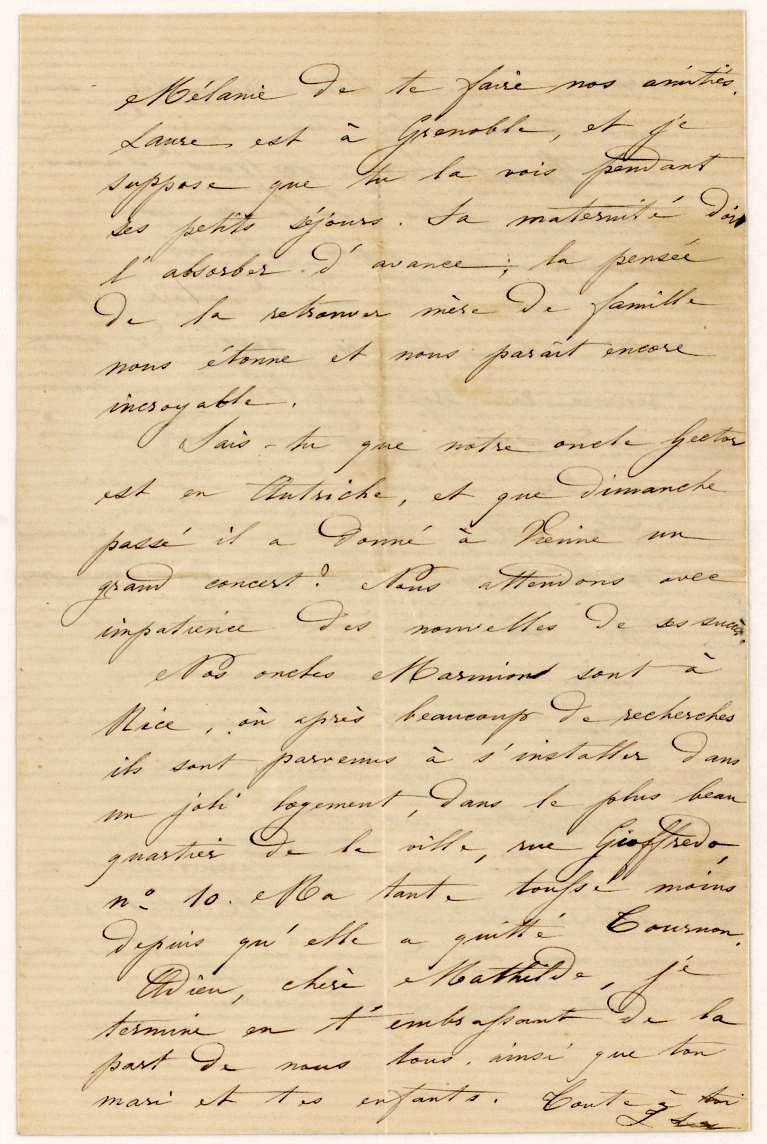 Mélanie de te faire nos amitiés.
Laure est à Grenoble, et je
suppose que tu la vois pendant
ses petits séjours. Sa maternité doit
l'absorber d'avance; la pensée
de la retrouver mère de famille
nous étonne et nous paraît encore
incroyable.
Sais-tu que notre oncle Hector
est en Autriche, et que dimanche
passé il a donné à Vienne un
grand concert? Nous attendons avec
impatience des nouvelles de ses succès.
Nos oncles Marmion sont à
Nice, où après beaucoup de recherches
ils sont parvenus à s'installer dans
un joli logement, dans le plus beau
quartier de la ville, rue Gioffredo,
nº 10. Ma tante tousse moins
depuis qu'elle a quitté Tournon.
Adieu, chère Mathilde, je
termine en t'embrassant de la
part de nous tous, ainsi que ton
mari et tes enfants. Toute à toi